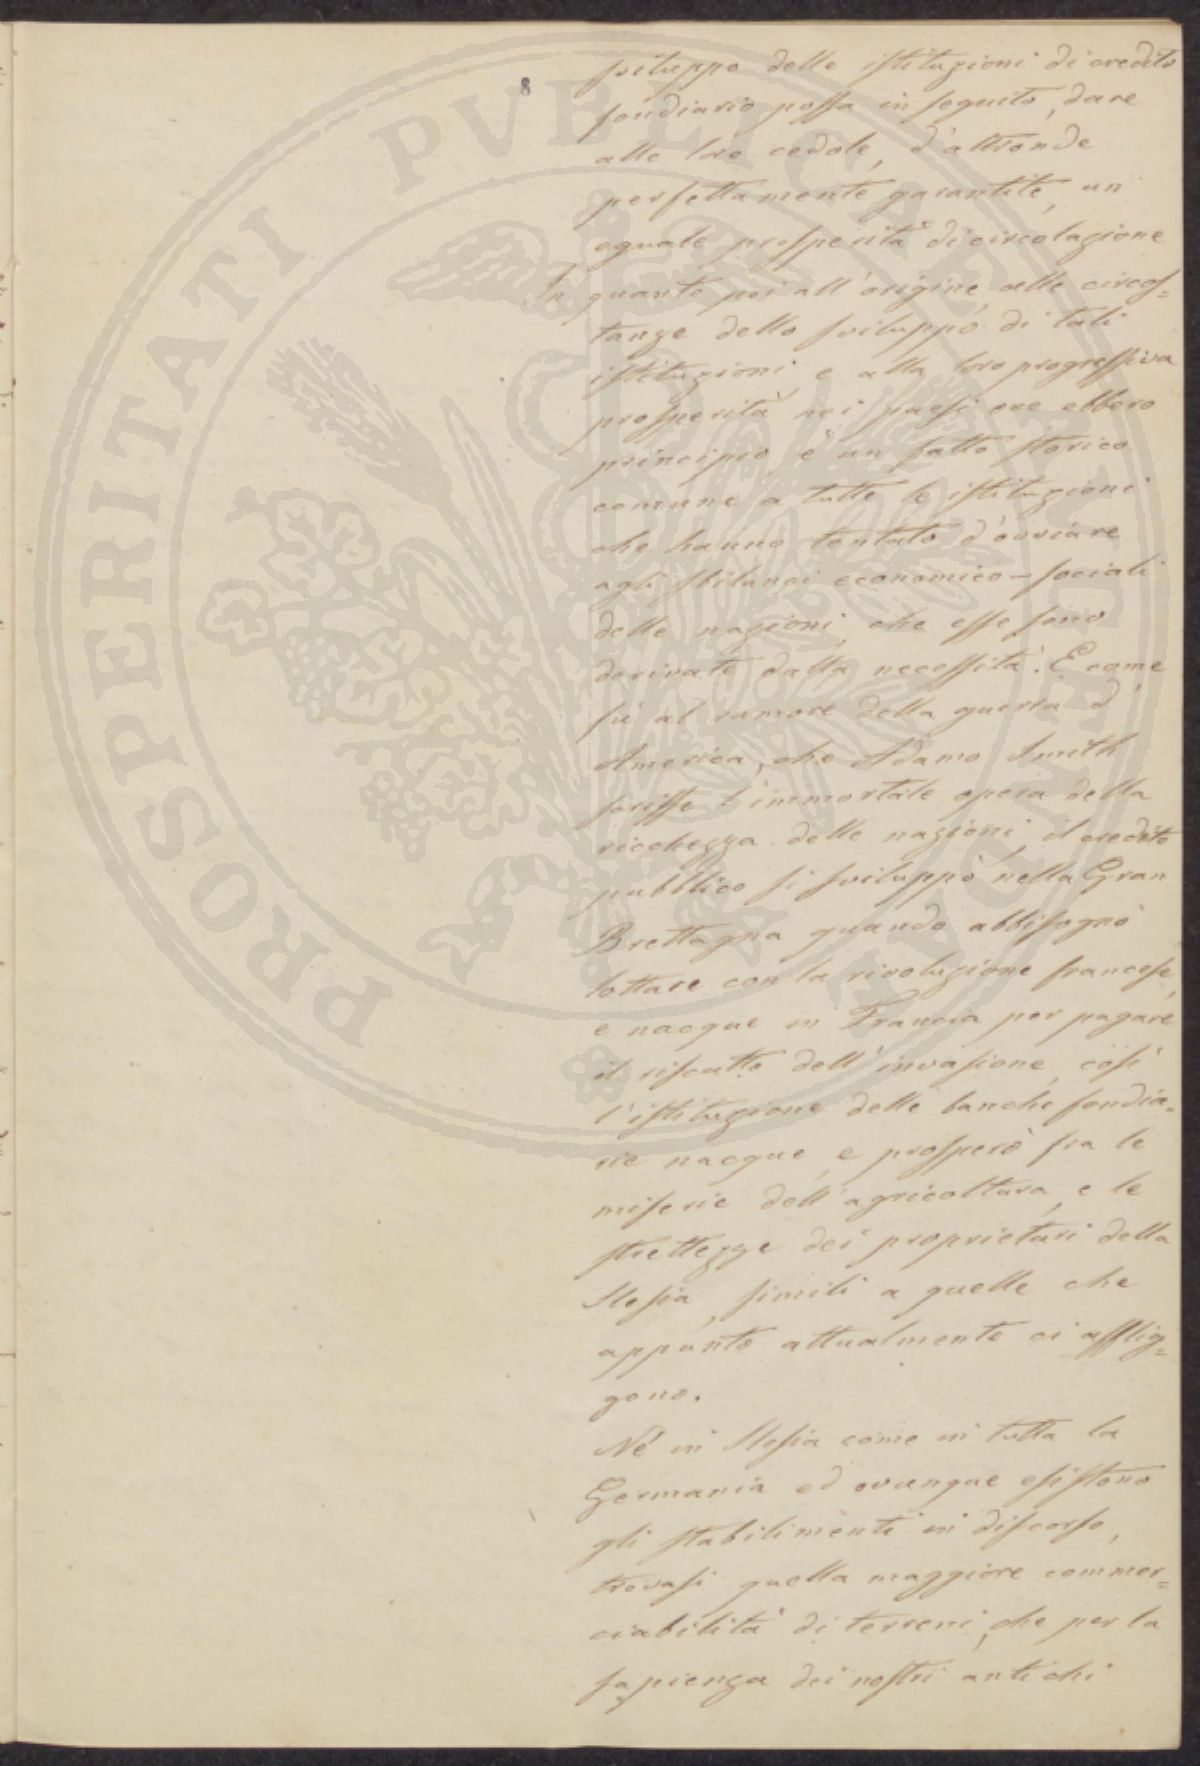 8
sviluppo delle istituzioni di credito
fondiario possa in seguito, dare
alle loro cedole, d'altronde
perfettamente garantite, un
eguale prosperità di circolazione
In quanto poi all'origine, alle circos=
tanze dello sviluppo di tali
istituzioni e alla loro progressiva
prosperità nei paesi ove ebbero
principio, è un fatto storico
comune a tutte le istituzioni
che hanno tentato d'ovviare
agli sbilanci economico-sociali
delle nazioni, che esse sono
derivate dalla necessità. E come
fù al rumore della guerra d'
America, che Adamo Smith
scrisse l'immortale opera della
ricchezza delle nazioni, il credito
pubblico si sviluppò nella Gran
Brettagna quando abbisognò
lottare con la rivoluzione francese,
e nacque in Francia per pagare
il riscatto dell'invasione, così
l'istituzione delle banche fondia=
rie nacque, e prosperò fra le
miserie dell'agricoltura, e le
strettezze dei proprietari della
Slesia, simili a quelle che
appunto attualmente ci afflig=
gono.
Nè in Slesia come in tutta la
Germania ed ovunque esistono
gli stabilimenti in discorso,
trovasi quella maggiore commer=
ciabilità di terreni, che per la
sapienza dei nostri antichi
PROSPERITATI PVBLICAE AVGENDAE